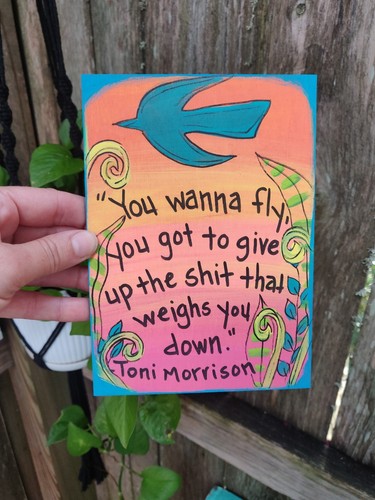 "You wanna fly,
you got to give
up the shit that
weighs you
down."
Toni Morrison